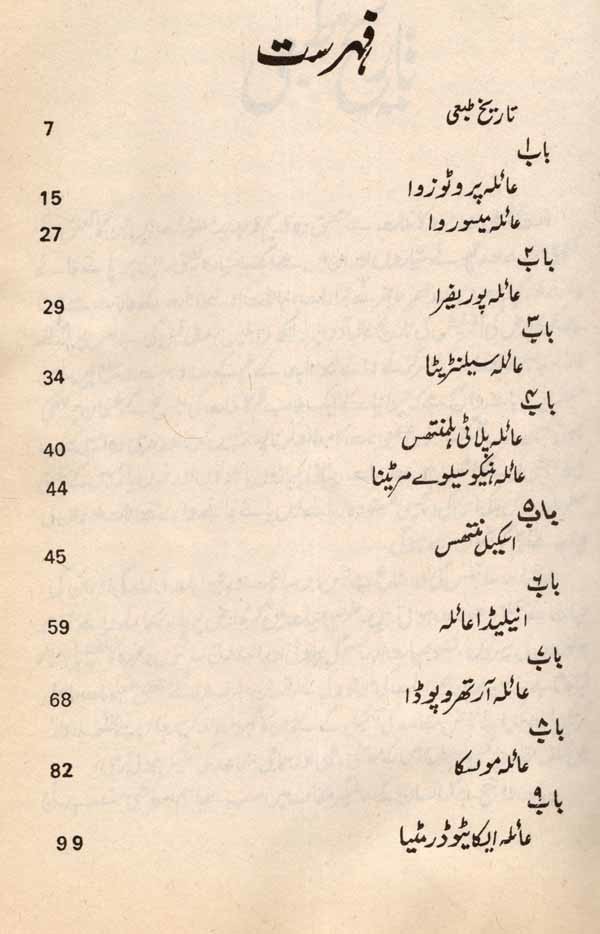 فہرست
تاریخ طبعی 7
باب ۱
عائلہ پروٹوزوا 15
عائلہ میسوروا 27
باب ۲
عائلہ پوریفرا 29
باب ۳
عائلہ سیلنٹریٹا 34
باب ۴
عائلہ پلاٹی ہلمنتھس 40
عائلہ ہنکوسیلوے مرٹینا 44
باب ۵
اسکیل منتھس 45
باب ۶
انیلیڈا عائلہ 59
باب ۷
عائلہ آرتھروپوڈا 68
باب ۸
عائلہ مولسکا 82
باب ۹
عائلہ ایکائیوڈرمیٹیا 99